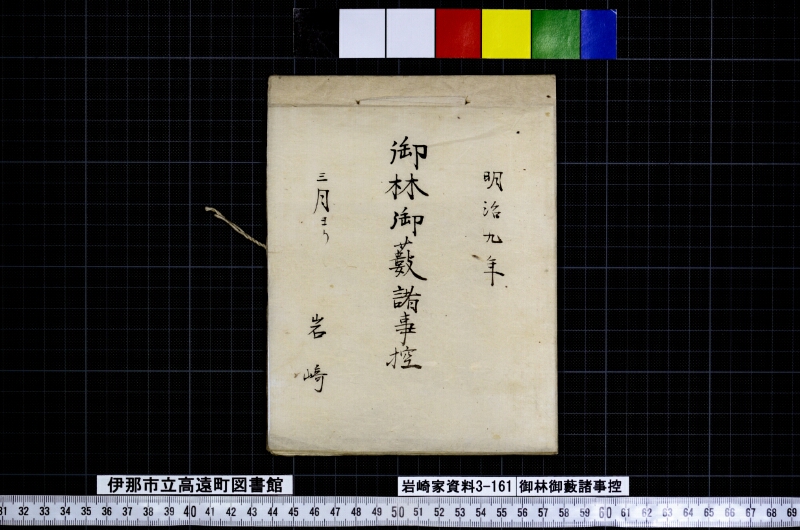 明治九年
御林御藪諸事控
三月より
岩崎
伊那市立高遠町図書館
岩崎家資料3-161
御林御藪諸事控
31 32 33 34 35 36 37 38 39 40 41 42 43 44 45 46 47 48 49 50 51 52 53 54 55 56 57 58 59 60 61 62 63 64 65 66 67 68 69